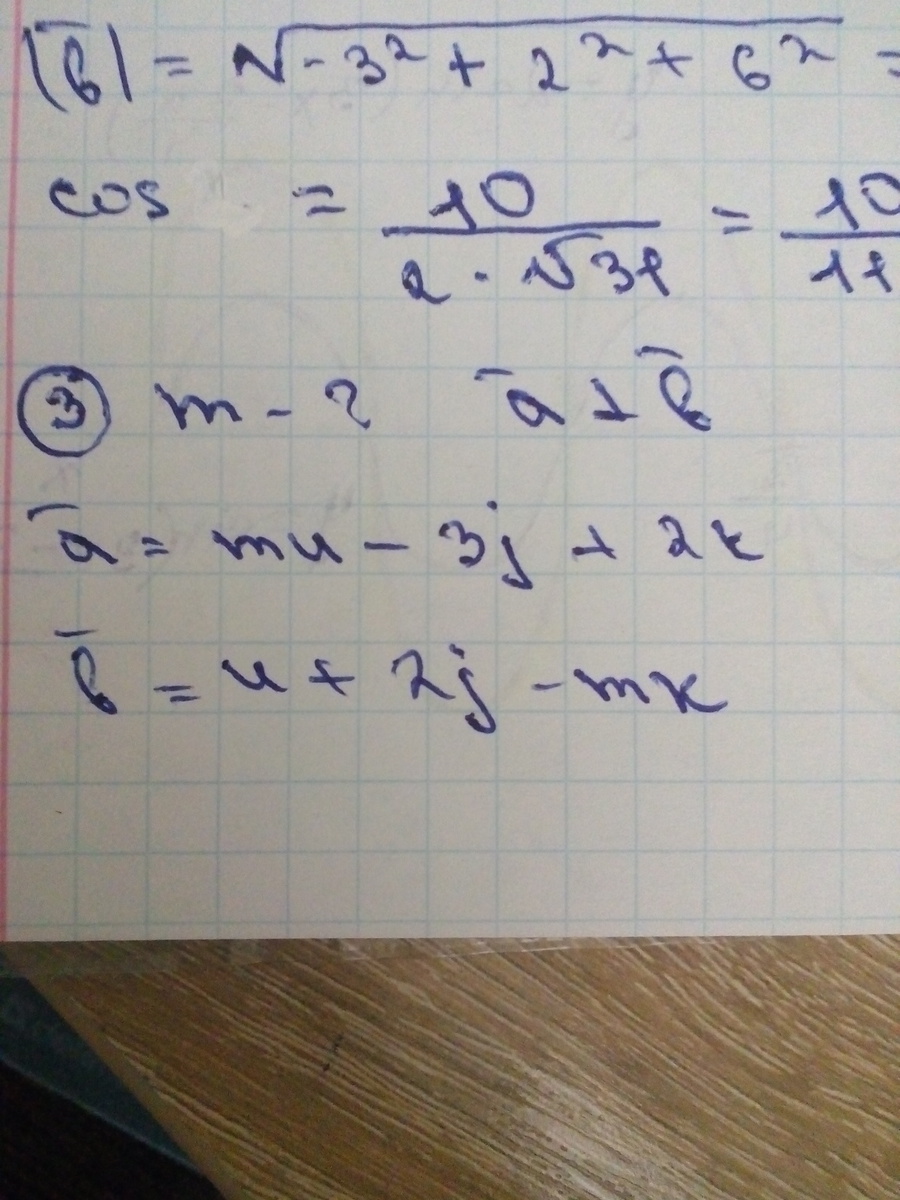 |b̅| = √-3² + 2² + 6² =
cos = 10/2·√31 = 10/11
③ m - ? a̅ ⊥ b̅
a̅ = mi - 3j + 2k
b̅ = i + 2j - mk